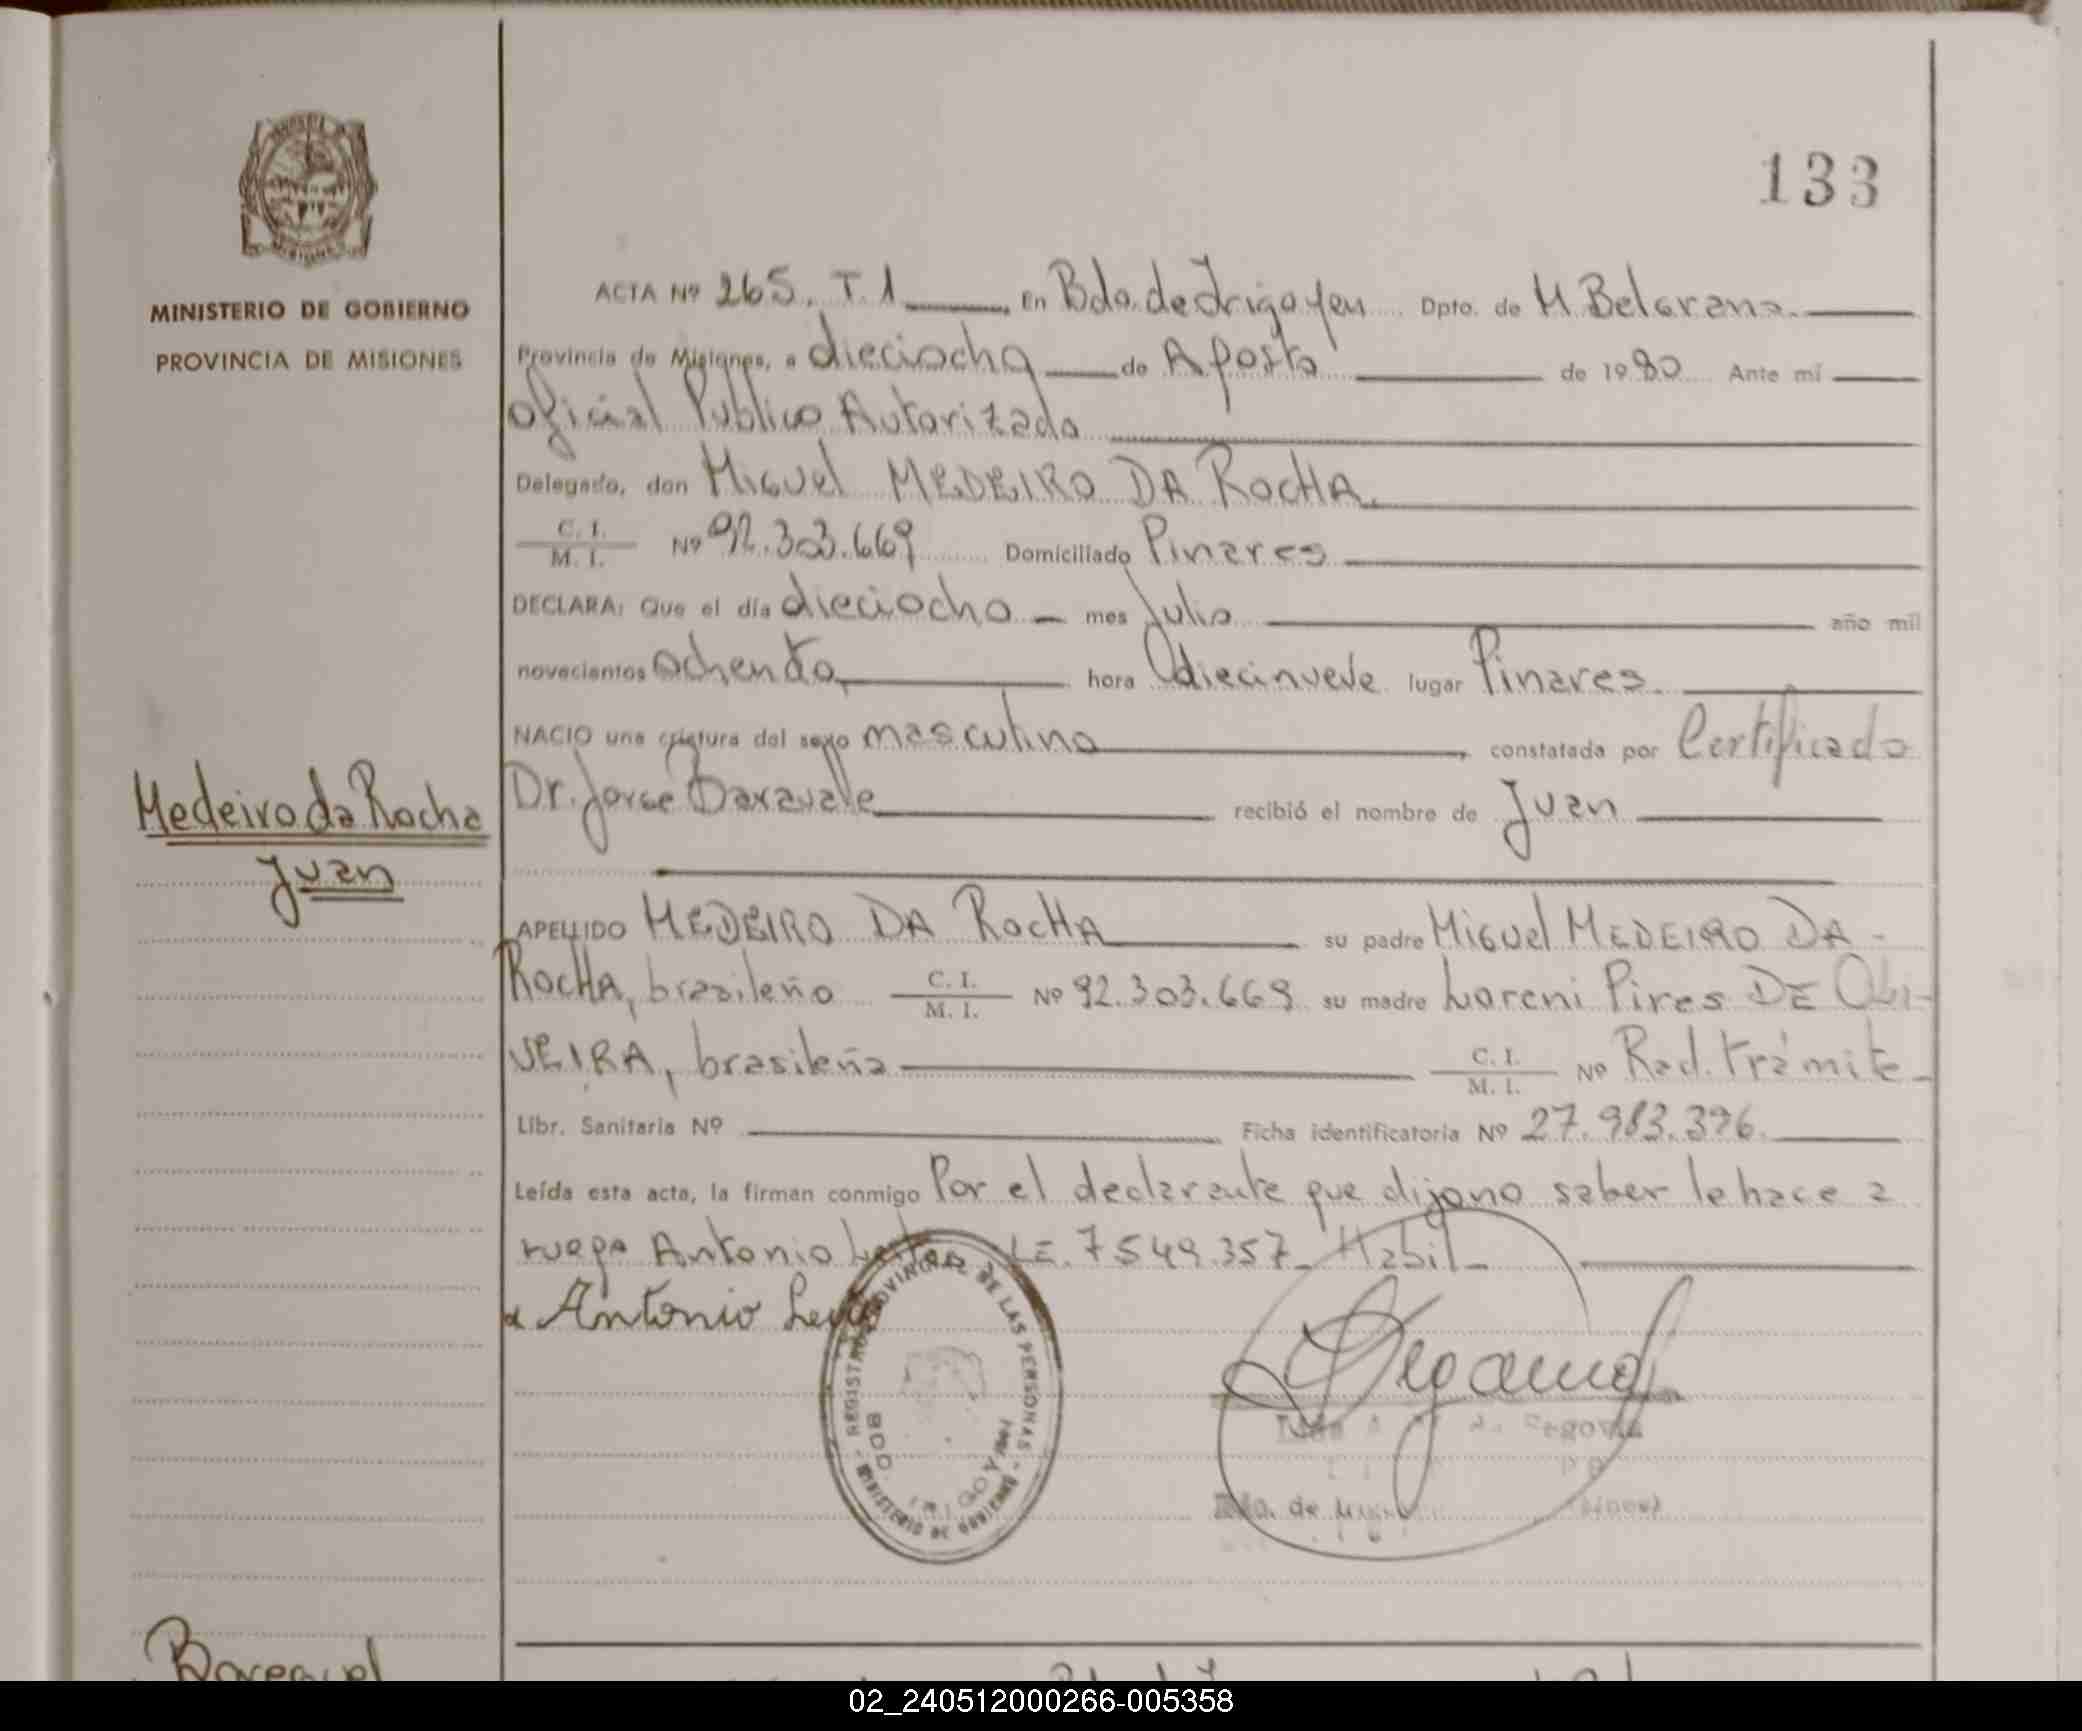 133
MINISTERIO DE GOBIERNO
PROVINCIA DE MISIONES
ACTA Nº 265. T. 1 en Bdo. de Irigoyen Dpto. de M. Belgrano
Provincia de Misiones, a dieciocho de Agosto de 1980 Ante mí
Oficial Publico Autorizado
Delegado, don Miguel MEDEIRO DA ROCHA.
C. I.
M. I. Nº 92.303.669 Domiciliado Pinares
DECLARA: Que el día dieciocho mes Julio año mil
novecientos ochenta, hora diecinueve lugar Pinares.
NACIO una criatura del sexo masculino, constatada por Certificado
Dr. Jorge recibió el nombre de Juan
Medeiro da Rocha
Juan
APELLIDO MEDEIRO DA ROCHA su padre Miguel MEDEIRO DA
ROCHA, brasileño C. I.
M. I. Nº 92.303.669 su madre Loreni Pires DE OLI-
VEIRA, brasileña C. I.
M. I. Nº Rad. trámite
Libr. Sanitaria Nº Ficha identificatoria Nº 27.983.396.
Leída esta acta, la firman conmigo Por el declarante que dijo no saber lo hace a
ruego Antonio LE. 7549.357 Habil
Antonio
REGISTRO PROVINCIAL DE LAS PERSONAS
MINISTERIO DE GOBIERNO
BDO. IRIGOYEN
Segovia
Bdo. de
02_240512000266-005358